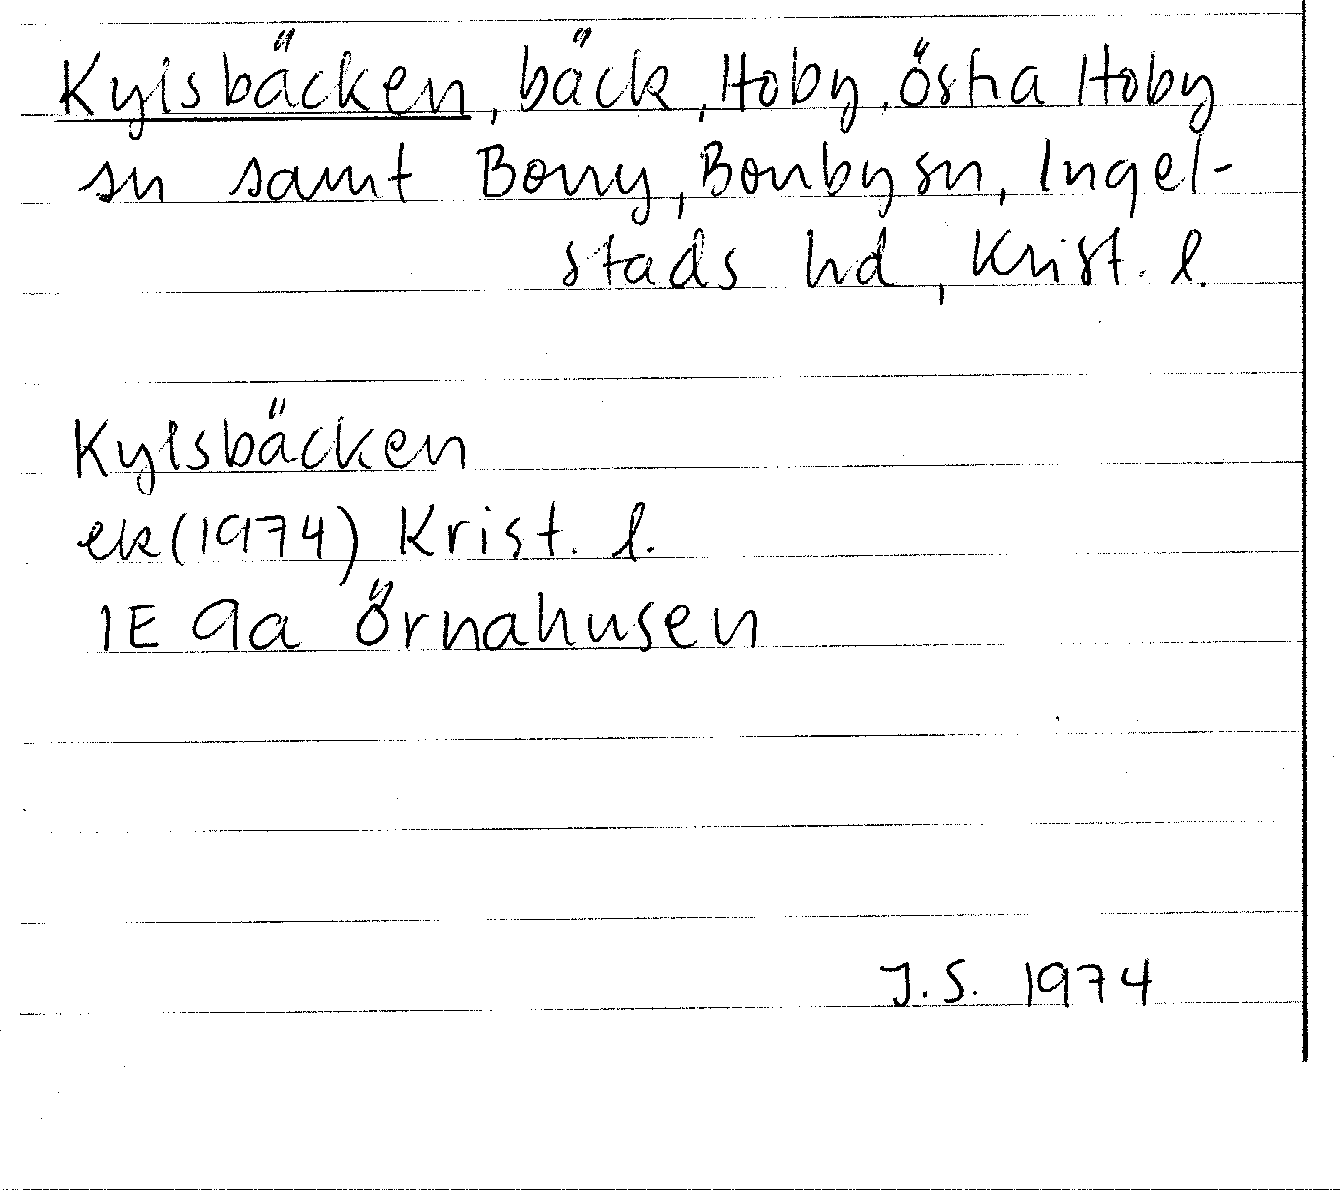 Kylsbäcken, bäck, Hoby, östra Hoby
sn samt Borry, Bonbysn, Ingel-
stads hd, Krist. l.
Kylsbäcken
ek(1974) Krist. l.
1E 9a Örnahusen
J.S. 1974